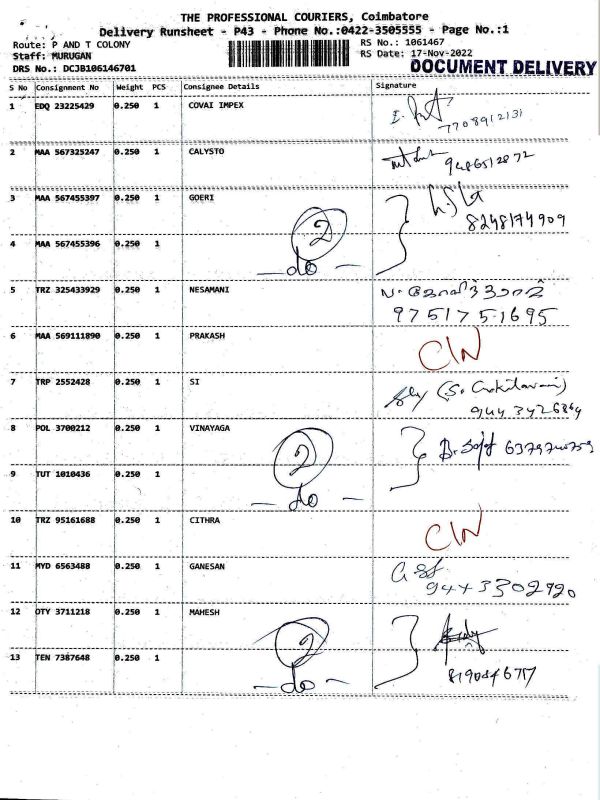 THE PROFESSIONAL COURIERS, Coimbatore
Delivery Runsheet - P43 - Phone No.:0422-3505555 - Page No.:1
Route: P AND T COLONY
RS No.: 1061467
Staff: MURUGAN
RS Date: 17-Nov-2022
DRS No.: DCJB106146701
DOCUMENT DELIVERY
S No Consignment No Weight PCS Consignee Details Signature
1 EDQ 23225429 0.250 1 COVAI IMPEX
7708912131
2 MAA 567325247 0.250 1 CALYSTO
9486512872
3 MAA 567455397 0.250 1 GOERI
2
8248174909
4 MAA 567455396 0.250 1
- do -
5 TRZ 325433929 0.250 1 NESAMANI
9751751695
6 MAA 569111890 0.250 1 PRAKASH C/N
7 TRP 2552428 0.250 1 SI
8 POL 3700212 0.250 1 VINAYAGA
2
9 TUT 1010436 0.250 1
- do -
10 TRZ 95161688 0.250 1 CITHRA C/N
11 MYD 6563488 0.250 1 GANESAN
9443302920
12 OTY 3711218 0.250 1 MAHESH
2
13 TEN 7387648 0.250 1
- do -